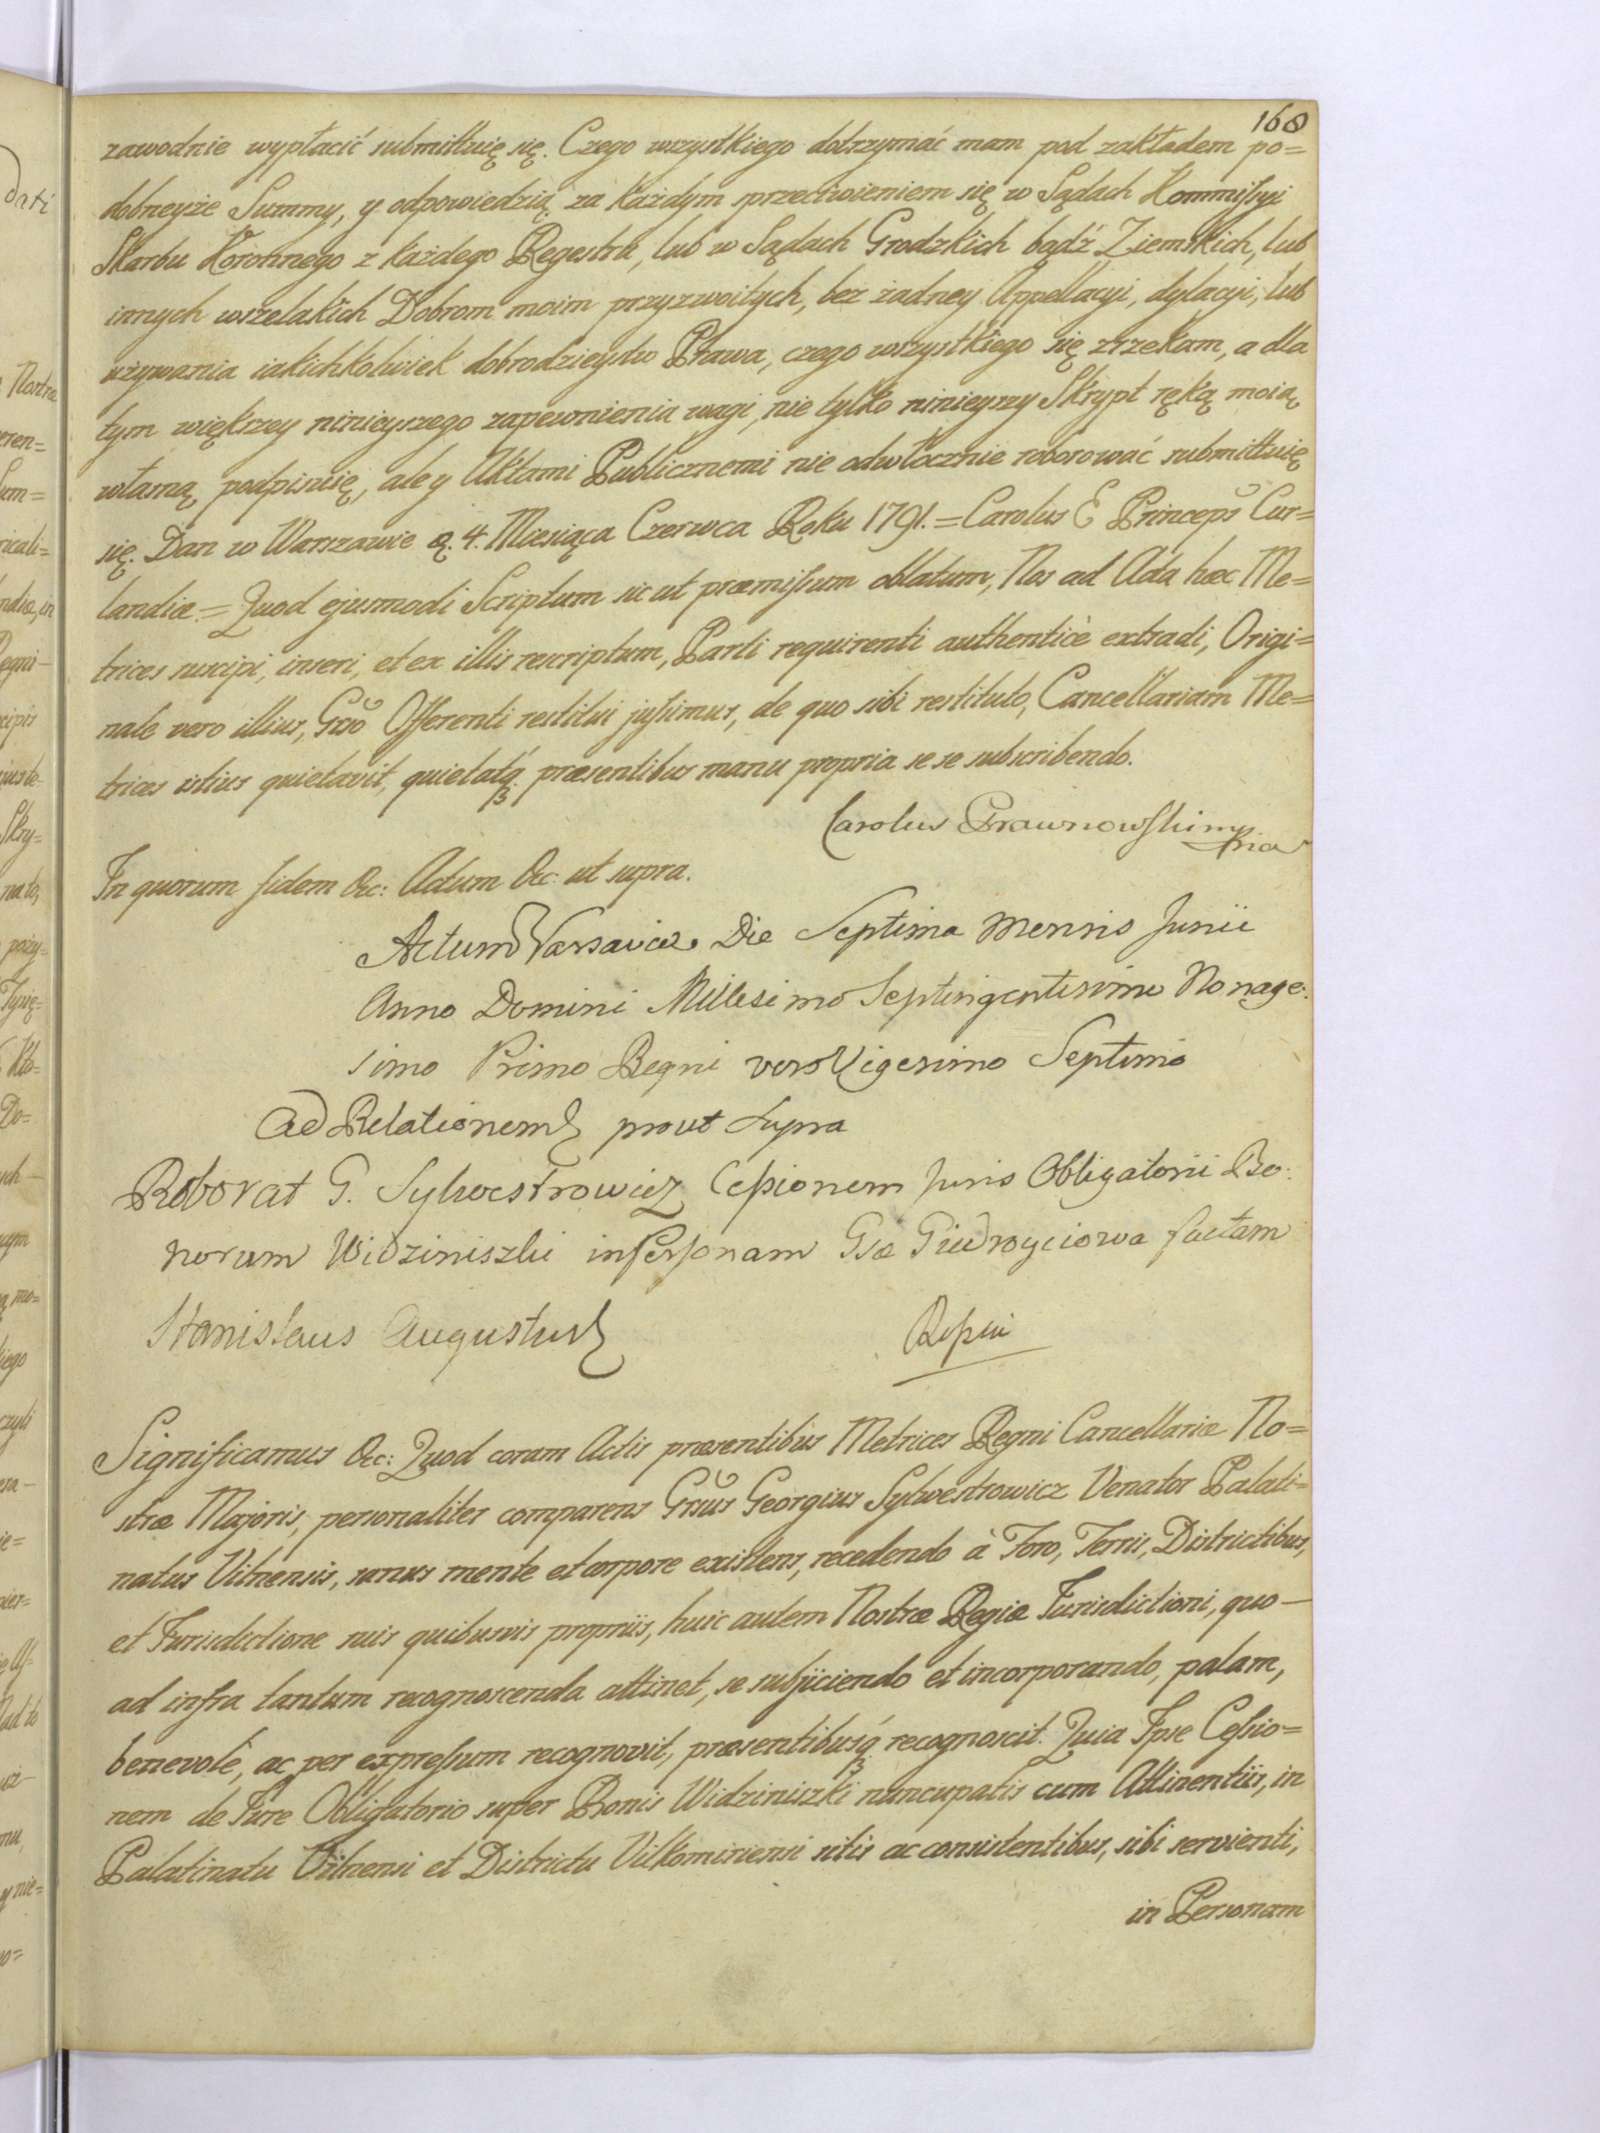 168
zawodnie wypłacić submittuię się. Czego wszystkiego dotrzymać mam pod zakładem po=
dobneyże Summy, y odpowiedzią za każdym sprzeciwieniem się w Sądach Kommissyi
Skarbu Koronnego z każdego Regestru, lub w Sądach Grodzkich bądź Ziemskich, lub
innych wszelakich Dobrom moim przyzwoitych, bez żadney Appellacyi, dylacyi, lub
używania iakichkolwiek dobrodzieystw Prawa, czego wszystkiego się zrzekam, a dla
tym większey ninieyszego zapewnienia wagi, nie tylko ninieyszy Skrypt ręką moią
własną podpisuię, ale y Aktami Publicznemi nie odwłocznie roborować submittuię
się. Dan w Warszawie d. 4. Miesiąca Czerwca Roku 1791. = Carolus E Princeps Cur=
landiæ = Quod ejusmodi Scriptum sic ut præmissum oblatum, Nos ad Acta hæc Me=
trices suscipi, inseri, et ex illis rescriptum, Parti requirenti authenticè extradi, Origi=
nale vero illius, Gñso Offerenti restitui jussimus, de quo sibi restituto, Cancellariam Me=
trices istius quietavit, quietatq3 præsentibus manu propria se se subscribendo.
Carolus Prawnowski mpria
In quorum fidem &c: Actum &c ut supra.
Actum Varsaviæ Die Septima Mensis Junii
Anno Domini Millesimo Septingentesimo Nonage:
simo Primo Regni vero Vigesimo Septimo
Ad Relationem prout Supra
Roborat G. Sylwestrowicz Cessionem Juris Obligatorii Bo:
norum Widziniszki in Personam Gsæ Giedroyciowa factam
Stanislaus Augustus
Significamus &c: Quod coram Actis præsentibus Metrices Regni Cancellariæ No=
stræ Majoris, personaliter comparens Gñsus Georgius Sylwestrowicz Venator Palati=
natus Vilnensis, sanus mente et corpore existens, recedendo à Foro, Terris, Districtibus,
et Jurisdictione suis quibusvis propriis, huic autem Nostræ Regiæ Jurisdictioni, quo—
ad infra tantum recognoscenda attinet, se subjiciendo et incorporando, palam,
benevolè, ac per expressum recognovit, præsentibusq3 recognoscit. Quia Ipse Cessio=
nem de Jure Obligatorio super Bonis Widziniszki nuncupatis cum Attinentiis, in
Palatinatu Vilnensi et Districtu Vilkomiriensi sitis ac consistentibus, sibi servienti,
in Personam